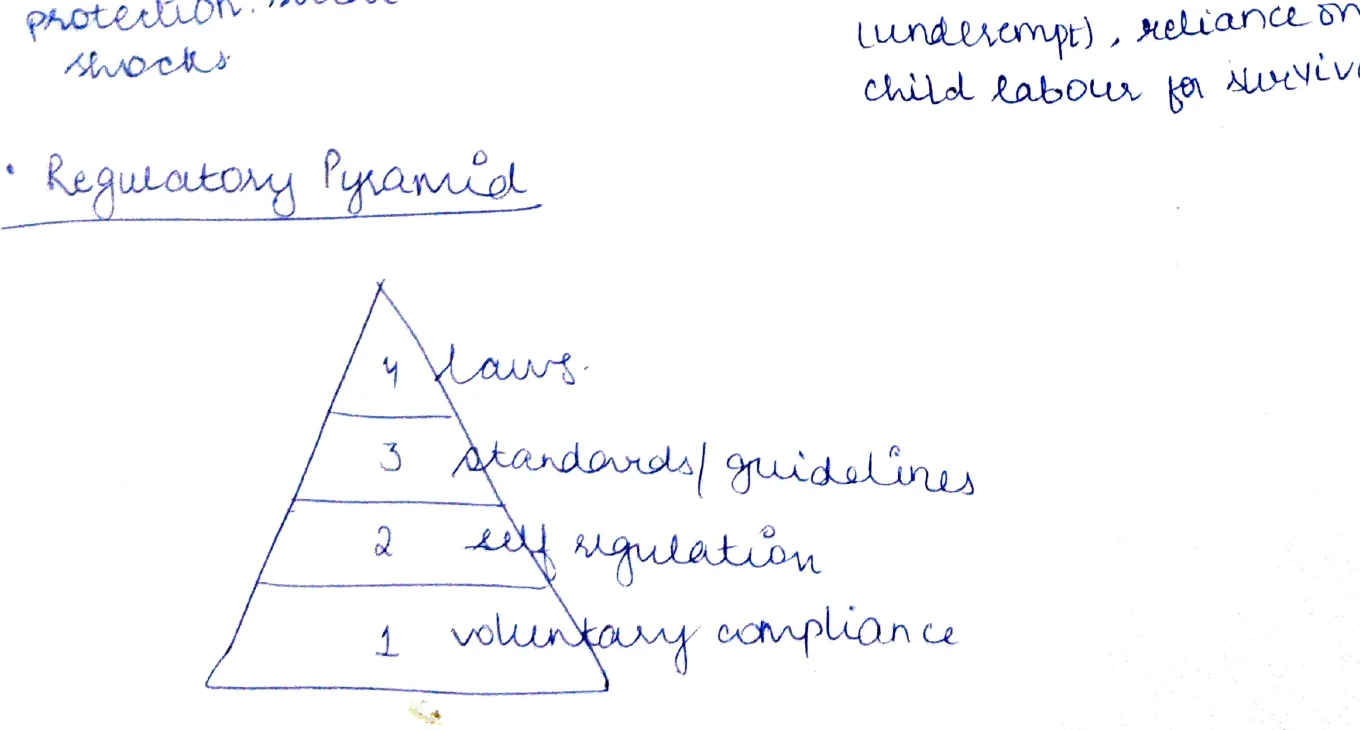 protection.
shocks.
(underempt), reliance on
child labour for
• Regulatory Pyramid
4 laws.
3 standards/guidelines
2 self regulation
1 voluntary compliance